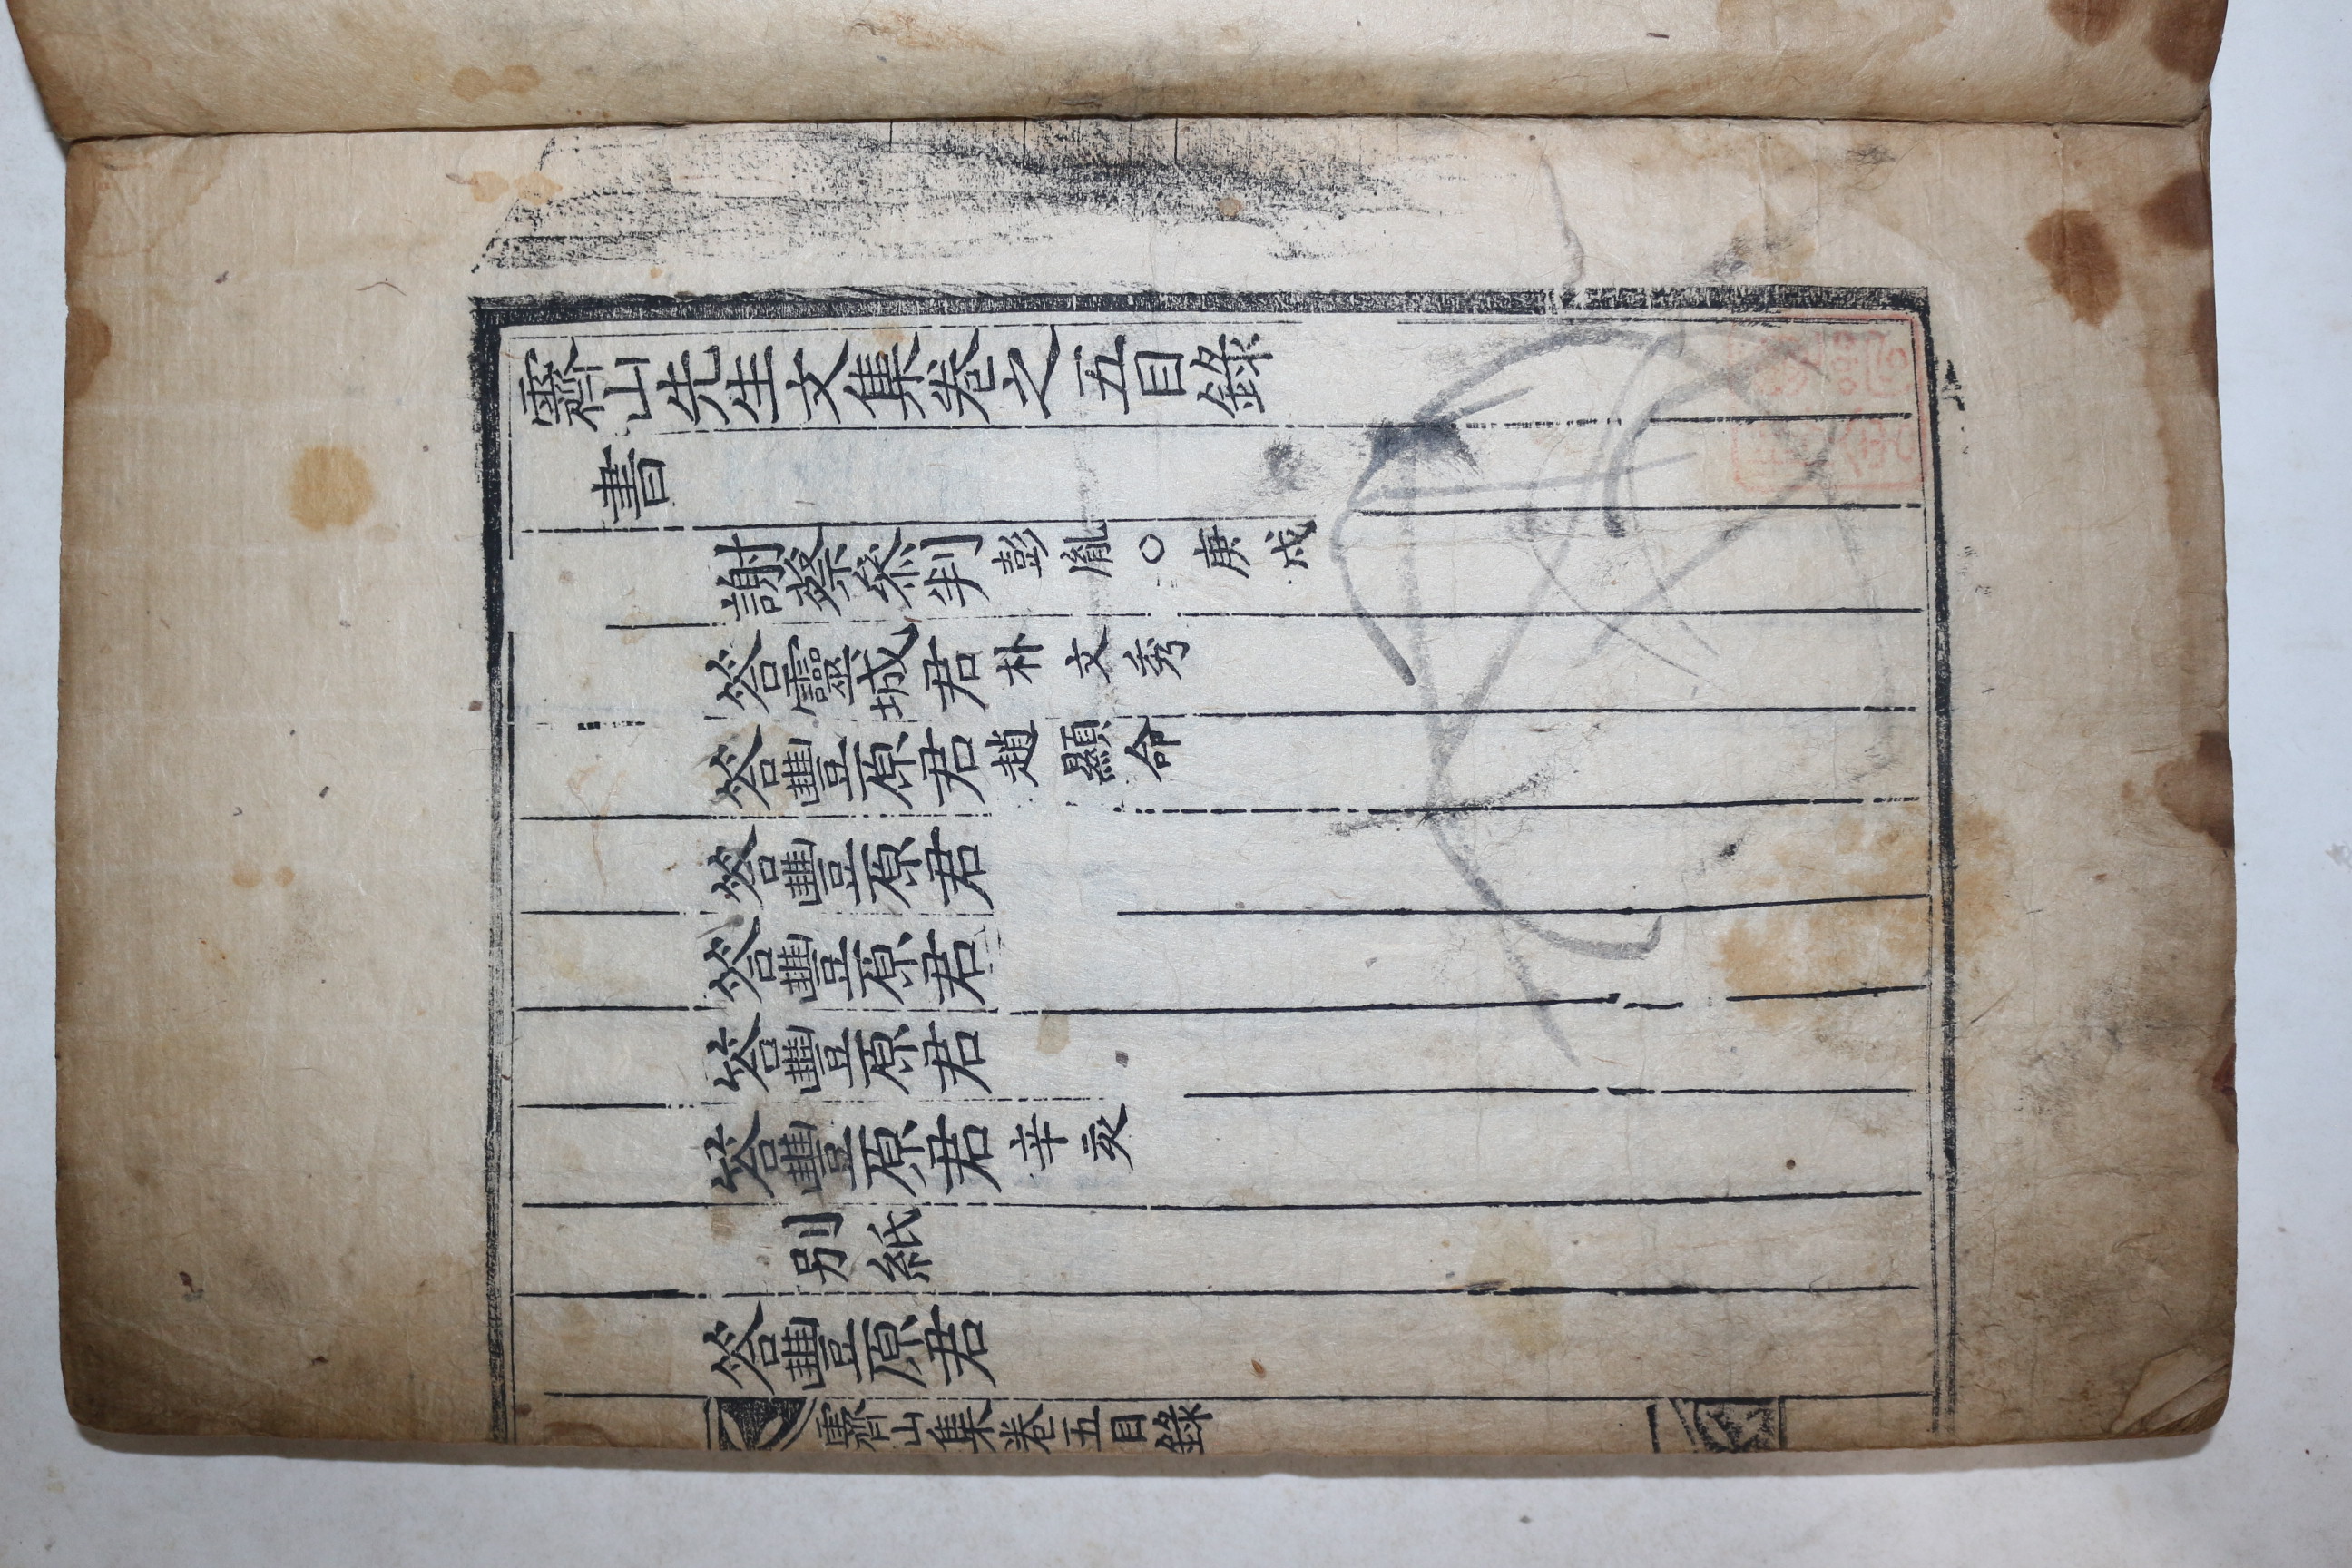 霽山先生文集卷之五目錄
書
謝蔡叅判彭胤○庚戌
答靈城君朴文秀
答豐原君趙顯命
答豐原君
答豐原君
答豐原君
答豐原君辛亥
別紙
答豐原君
霽山集卷五目錄